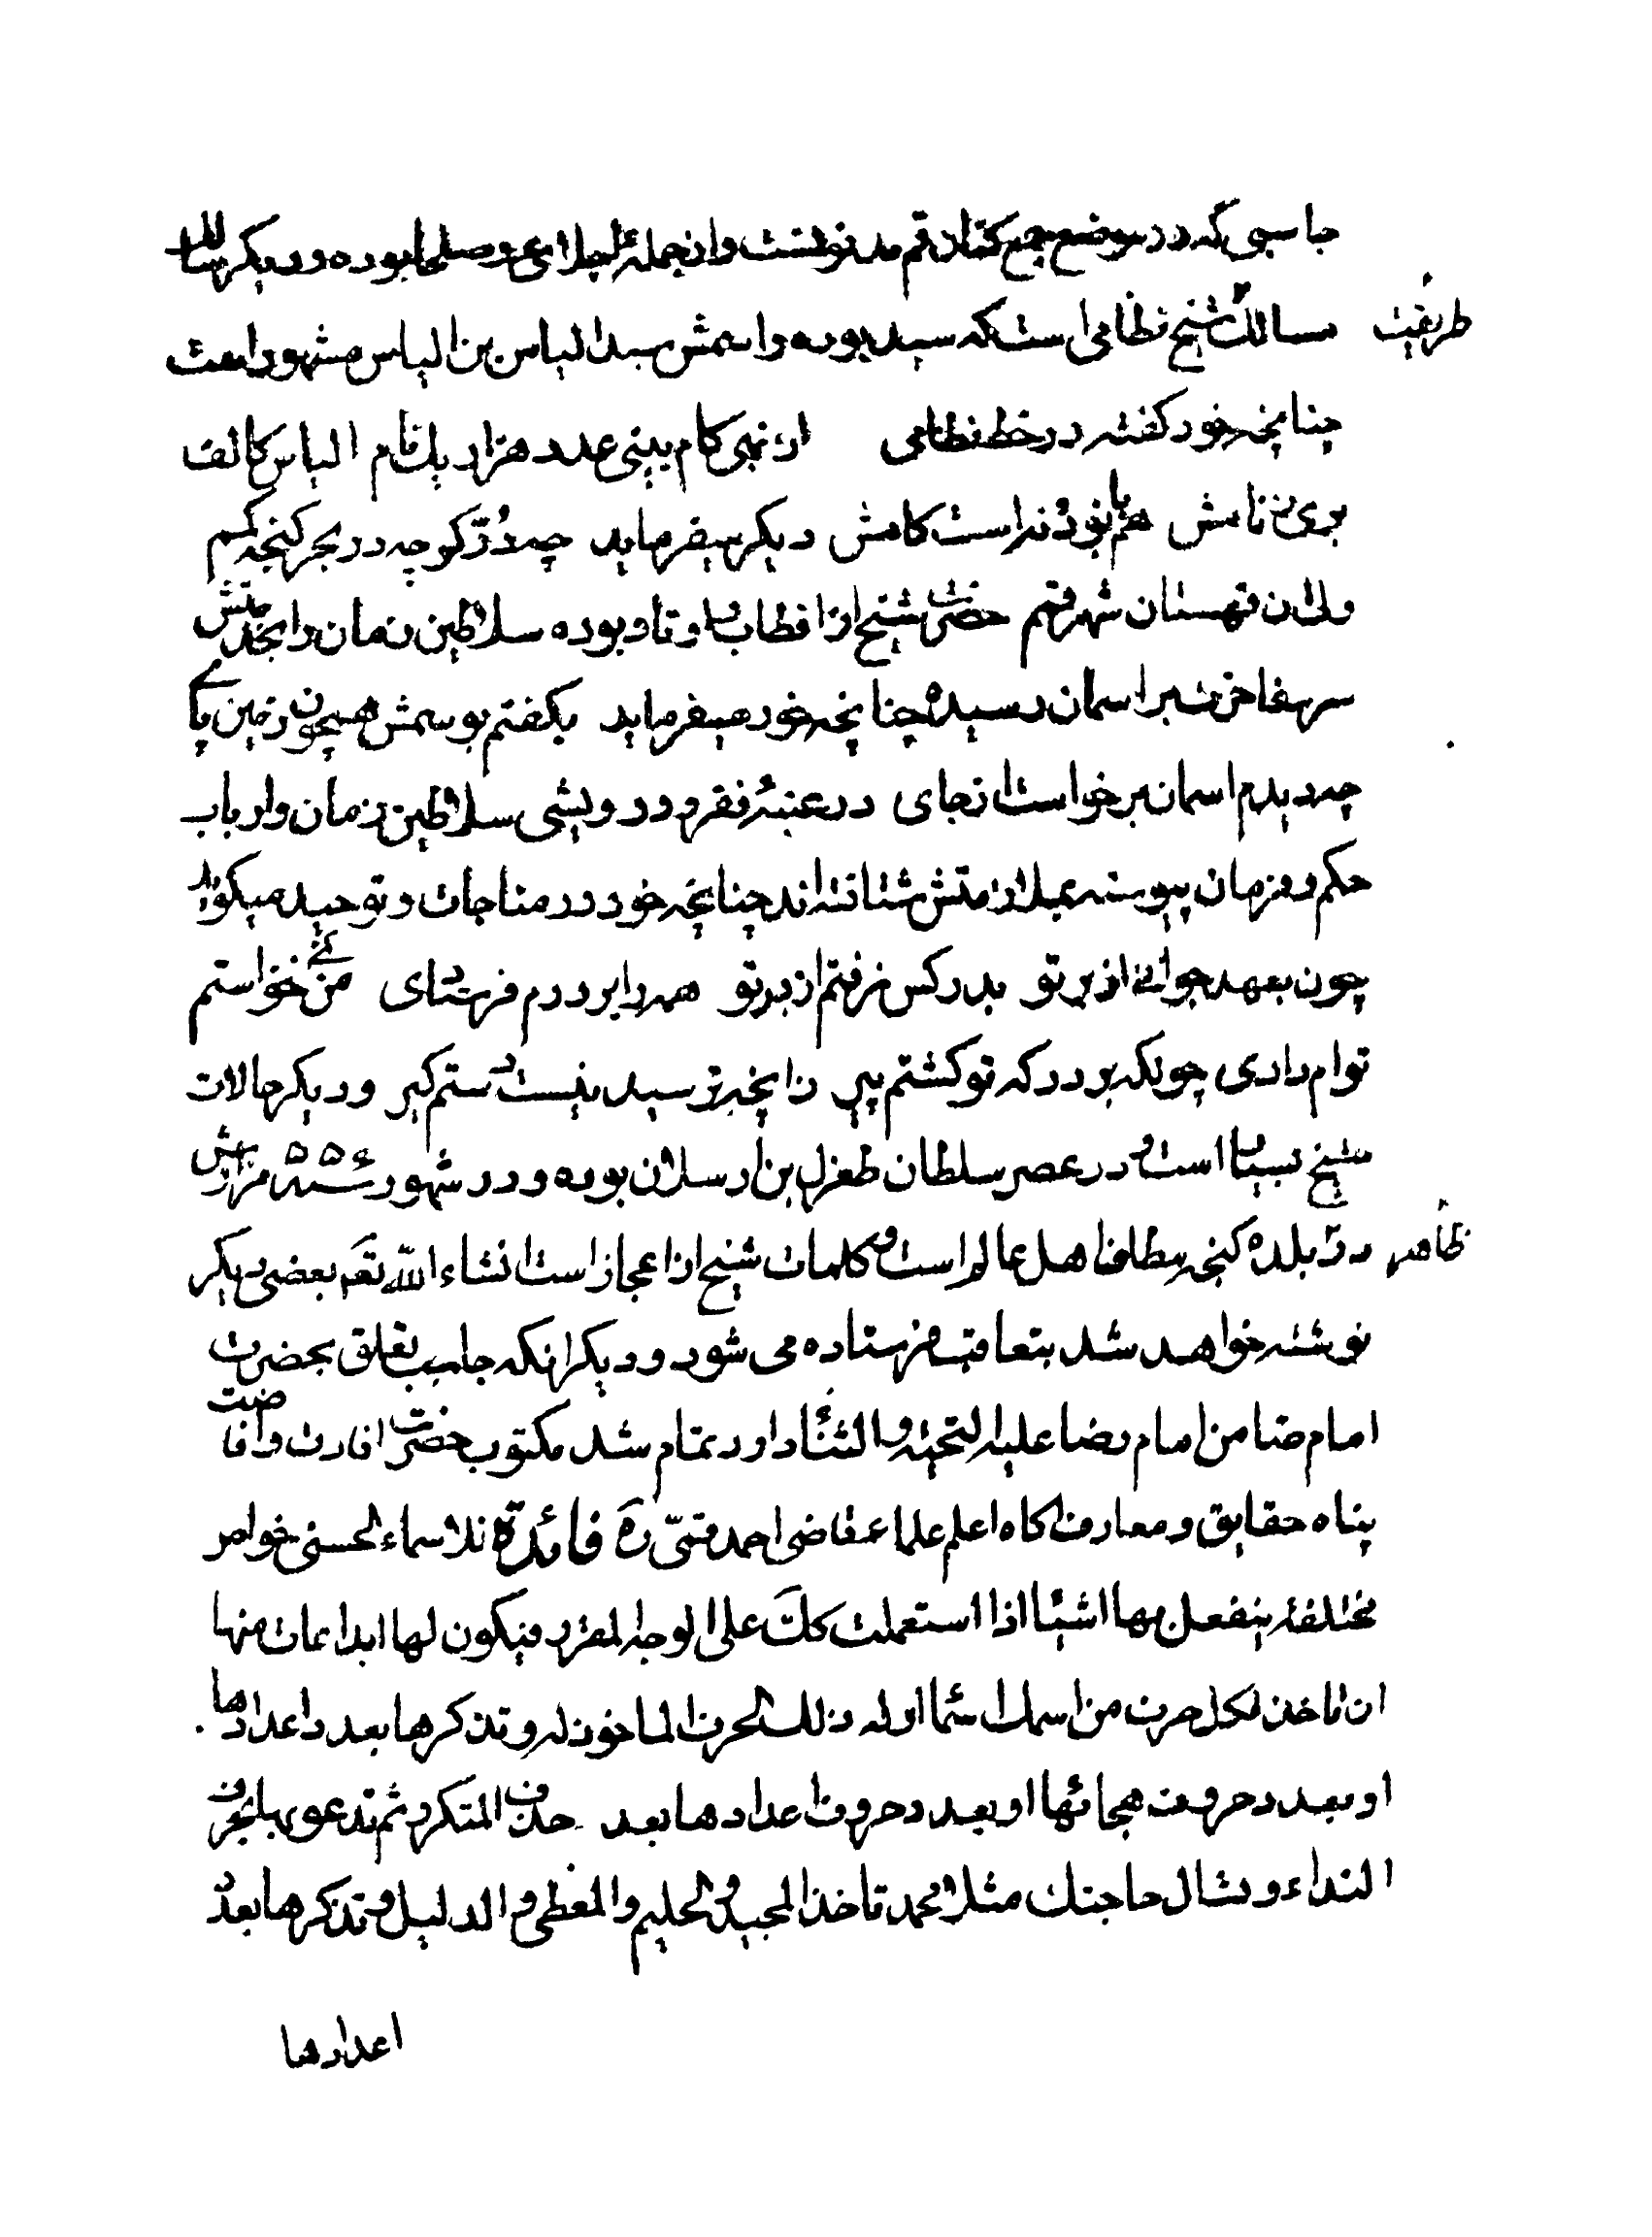 جاسبی که در موضع جمع کنار قم مدفونست و از جمله اجلای و صلحا بوده و دیکر سالک
طریقت مسالک شیخ نظامی است که سید بوده و اسمش سید الیاس بن الیاس مشهور است
چنانچه خود کفته در خط نظامی ار نهی کام بینی عدد هزار یک نام الیاس کالف
بری ز نامش هم با نود نه است نامش دیکر میفرماید چه دُرّ کو چه در بحر کنجه کمم
ولی از قهستان شهر قمم حضرت شیخ از اقطاب و اوتاد بوده سلاطین زمان را بخدمتش
سر مفاخرت بر اسمان رسیده چنانچه خود میفرماید بکفتم بوسمش همچون زمین پای
چه دیدم اسمان برخواست از جای در عتبهٔ فقر و درویشی سلاطین زمان و ارباب
حکم و فرمان پیوسته بملازمتش شتافته‌اند چنانچه خود در مناجات و توحید میکوید
چون بعهد جوانی از بر تو بدر کس نرفتم از در تو همه را بر درم فرستادی من نمی خواستم
توام دادی چونکه بر درکه تو کشتم پیر زانچه ترسید نیست دستم کیر و دیکر حالات
شیخ بسیار است و در عصر سلطان طغرل بن ارسلان بوده و در شهور سنه ۵۵۶ مزارش
ظاهر در بلده کنجه مطاف اهل عالم است و کلمات شیخ از اعجاز است انشاء الله تعَ بعضی دیکر
نوشته خواهد شد بتعاقب فرستاده می شود و دیکر انکه جاسب تعلق بحضرت
امام ضامن امام رضا علیه التحیه و الثنا دارد تمام شد مکتوب حضرت افادت و افاضت
پناه حقایق و معارف اکاه اعلم علما قاضی احمد قمّی رَه فائدة للاسماء الحسنی خواص
مختلفة ینفعل بها اشیا اذا استعملت کلّ علی الوجه المقرر فیکون لها ابداعات منها
ان تاخذ لکل حرف من اسمک اسما اوله ذلک الحرف الماخوذ له و تذکرها بعدد اعدادها
او بعدد حروف هجائها او بعدد حروف اعدادها بعد حذف المتکرر ثم تدعو بها بحرف
النداء و تسال حاجتک مثلا محمد تاخذ المجید و الحلیم و المعطی و الدلیل و تذکرها بعدد
اعدادها